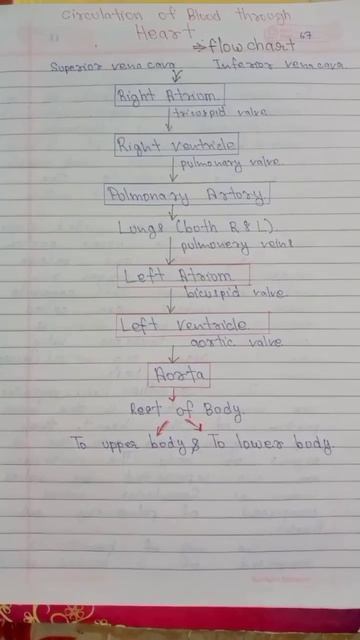 Circulation of Blood through
Heart
⇒ flow chart
67
Superior vena cava Inferior vena cava.
Right Atriom
tricuspid valve
Right ventricle
pulmonary valve
Pulmonary Artory
Lungs (both R & L)
pulmonery veins
Left Atriom
bicuspid valve
Left ventricle
aortic valve
Aorta
Rest of Body
To upper body & To lower body.